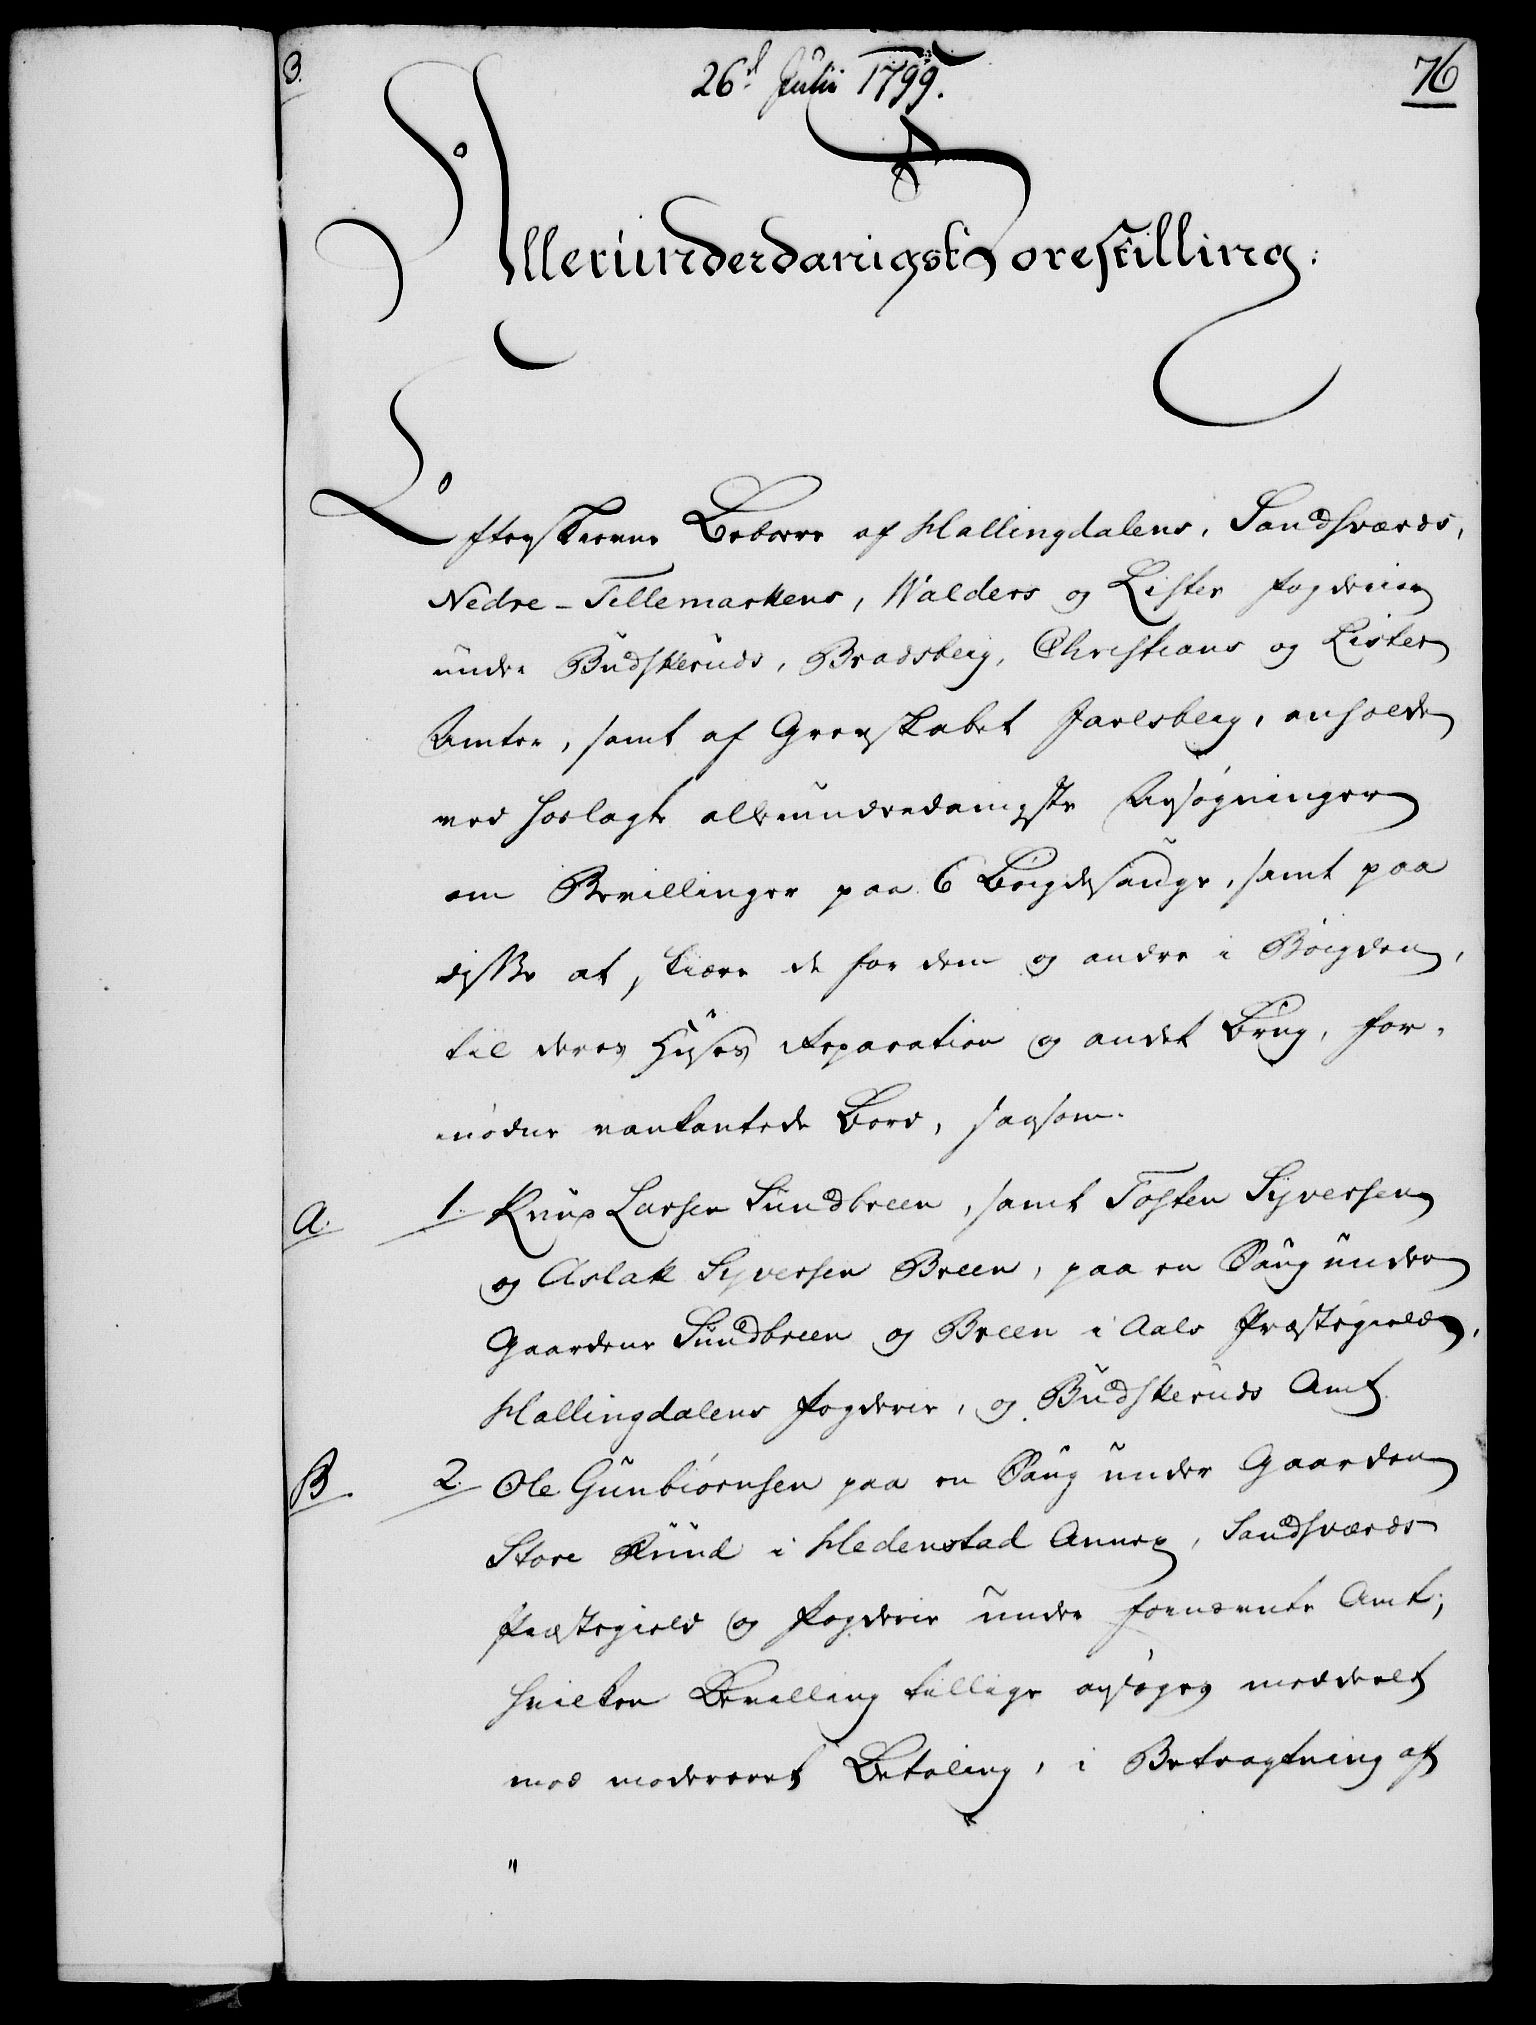 3.
26d Julii 1799.
76
Allerunderdanigst Forestilling:
Efterskrevne Beboere af Hallingdalens, Sandsværds,
Nedre-Tellemarkens, Walders og Lister Fogderier
under Budskeruds, Bradsberg, Christians og Lister
Amter, samt af Grevskabet Jarlsberg, anholde
ved hoslagte allerunderdanigste Ansøgninger
om Bevillinger paa 6 Bøigdesauge, samt paa
disse at skiære de for dem og andre i Bøigden,
til deres Huses Reparation og andet Brug, for-
nødne vankantede Bord, saasom.
A. 1. Knud Larsen Sundbreen, samt Tosten Syversen
og Aslak Syversen Breen, paa en Saug under
Gaardene Sundbreen og Breen i Aals Præstegield,
Hallingdalens Fogderie, og Budskeruds Amt.
B. 2. Ole Gunbiørnsen paa en Saug under Gaarden
Store Ruud i Hedenstad Annex, Sandsværds
Præstegield og Fogderie under fornævnte Amt;
hvilken Bevilling tillige ansøges meddeelt
mod modereret Betaling, i Betragtning af
"